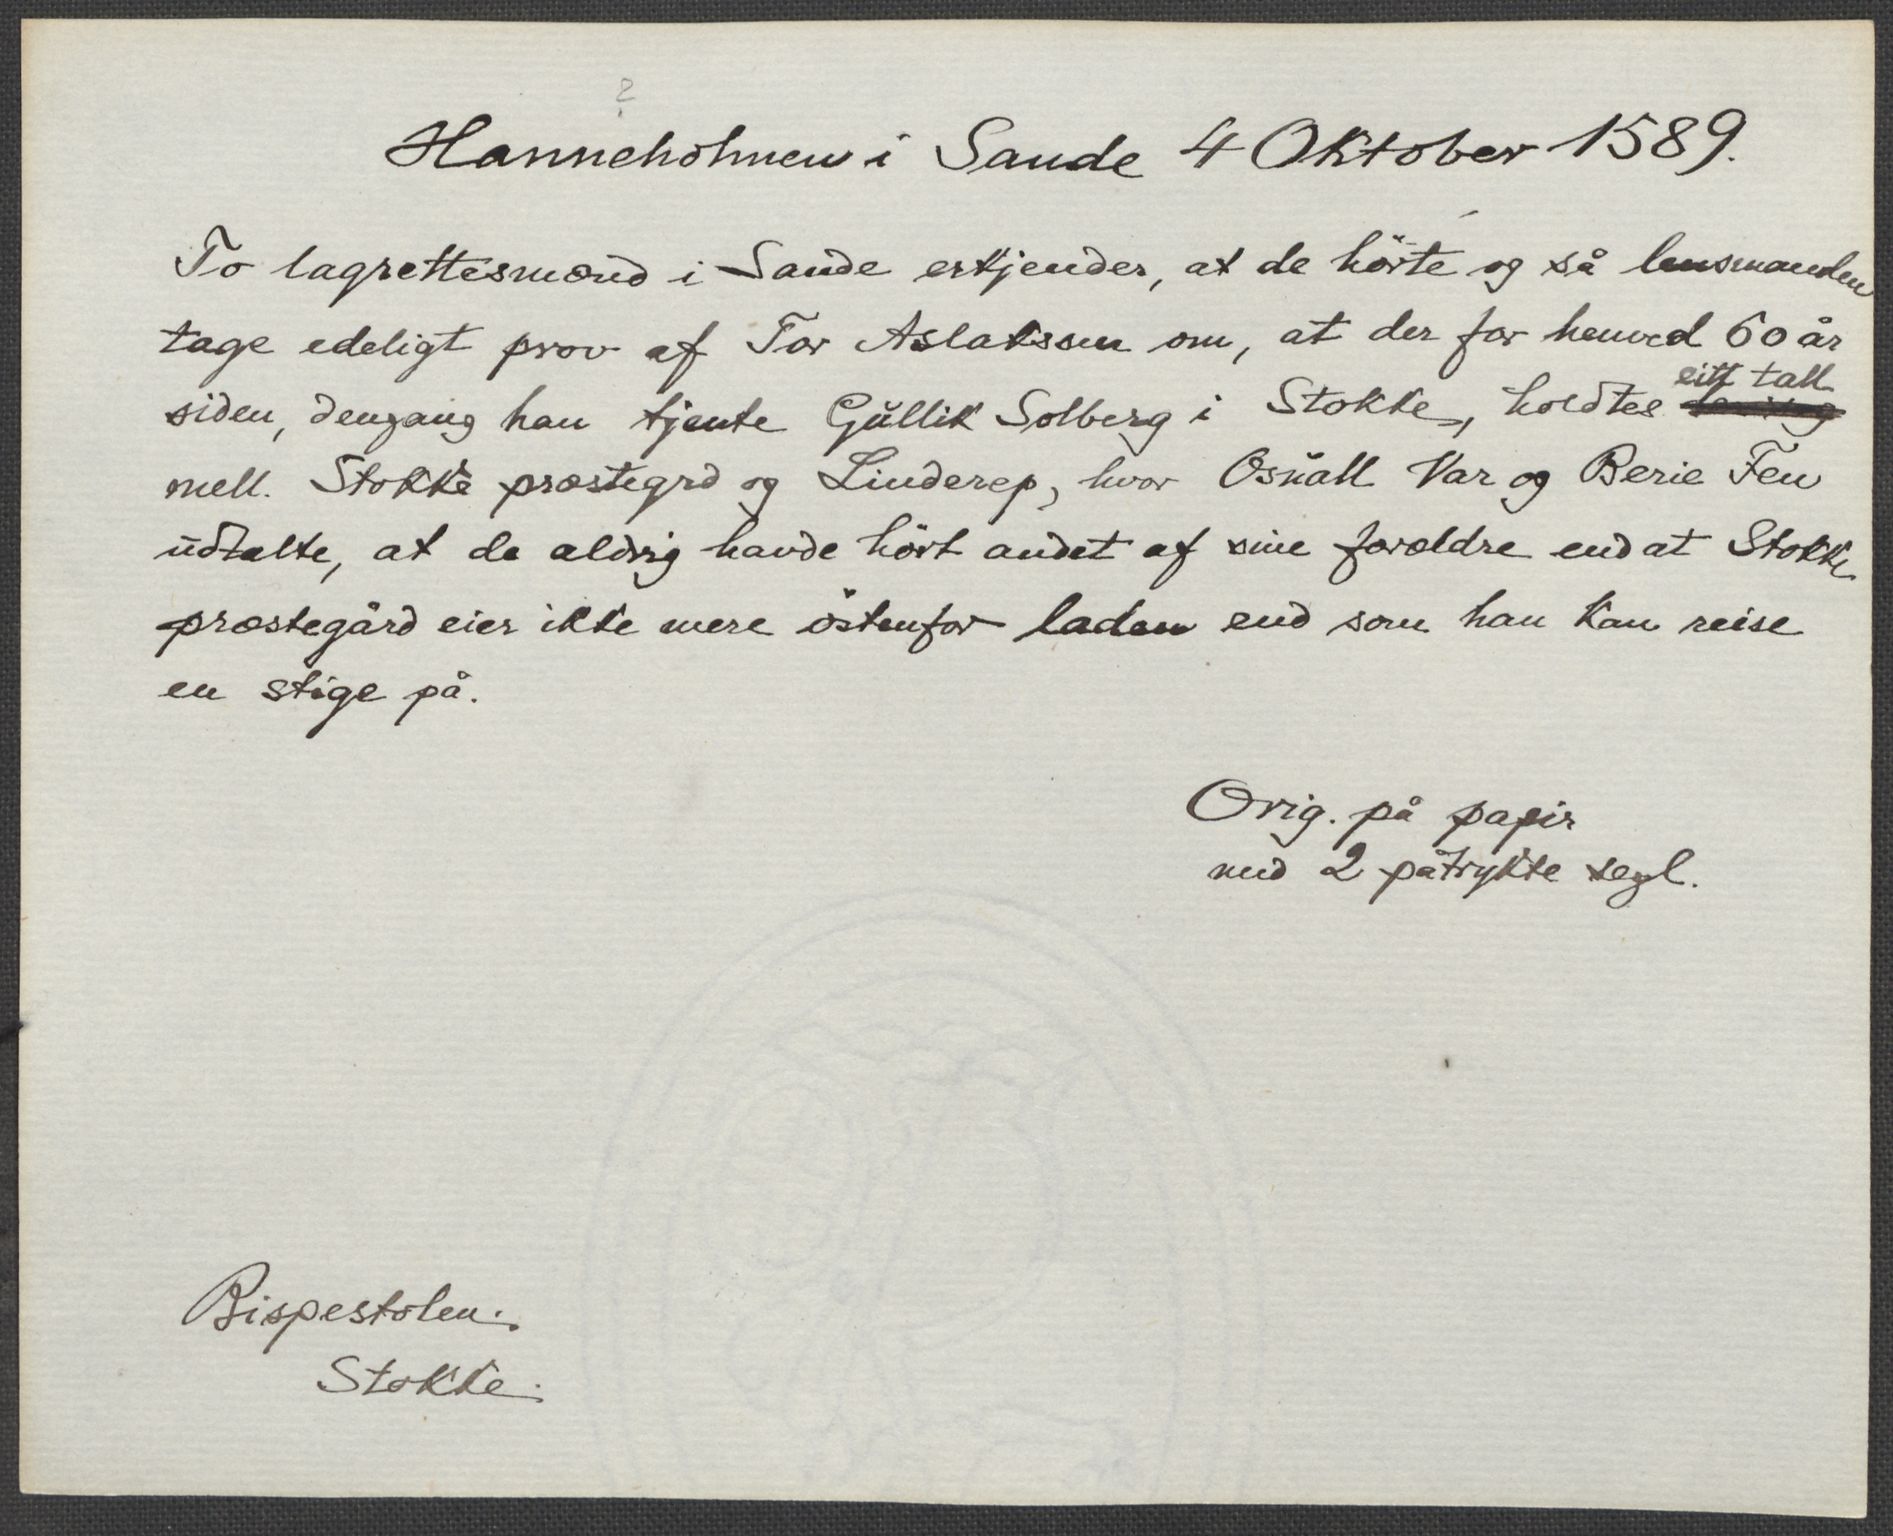 ?
Hanneholmen i Sande 4 Oktober 1589.
To lagrettesmænd i Sande erkjender, at de hörte og så lensmanden
tage edeligt prov af Tor Aslakssen om, at der for henved 60 år
siden, dengang han tjente Gŭllik Solberg i Stokke, holdtes eitt tall
mell. Stokke præstegrd og Linderep, hvor Osŭall Var og Berie Fen
ŭdtalte, at de aldrig havde hört andet af sine forældre end at Stokke
præstegård eier ikke mere östenfor laden end som han kan reise
en stige på.
Orig. på papir
med 2 påtrykte segl.
Bispestolen.
Stokke.